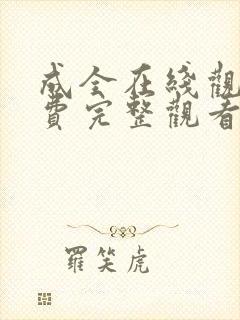 成全在綫觀
費完整觀看
羅笑虎